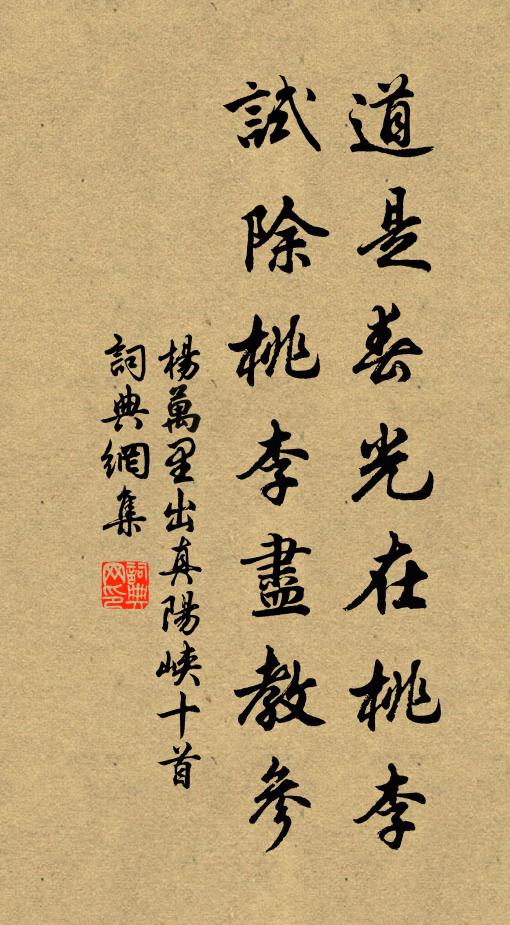 道是春光在桃李
試除桃李盡教參
楊萬里出真陽峽十首
詞典網集
詞典網印